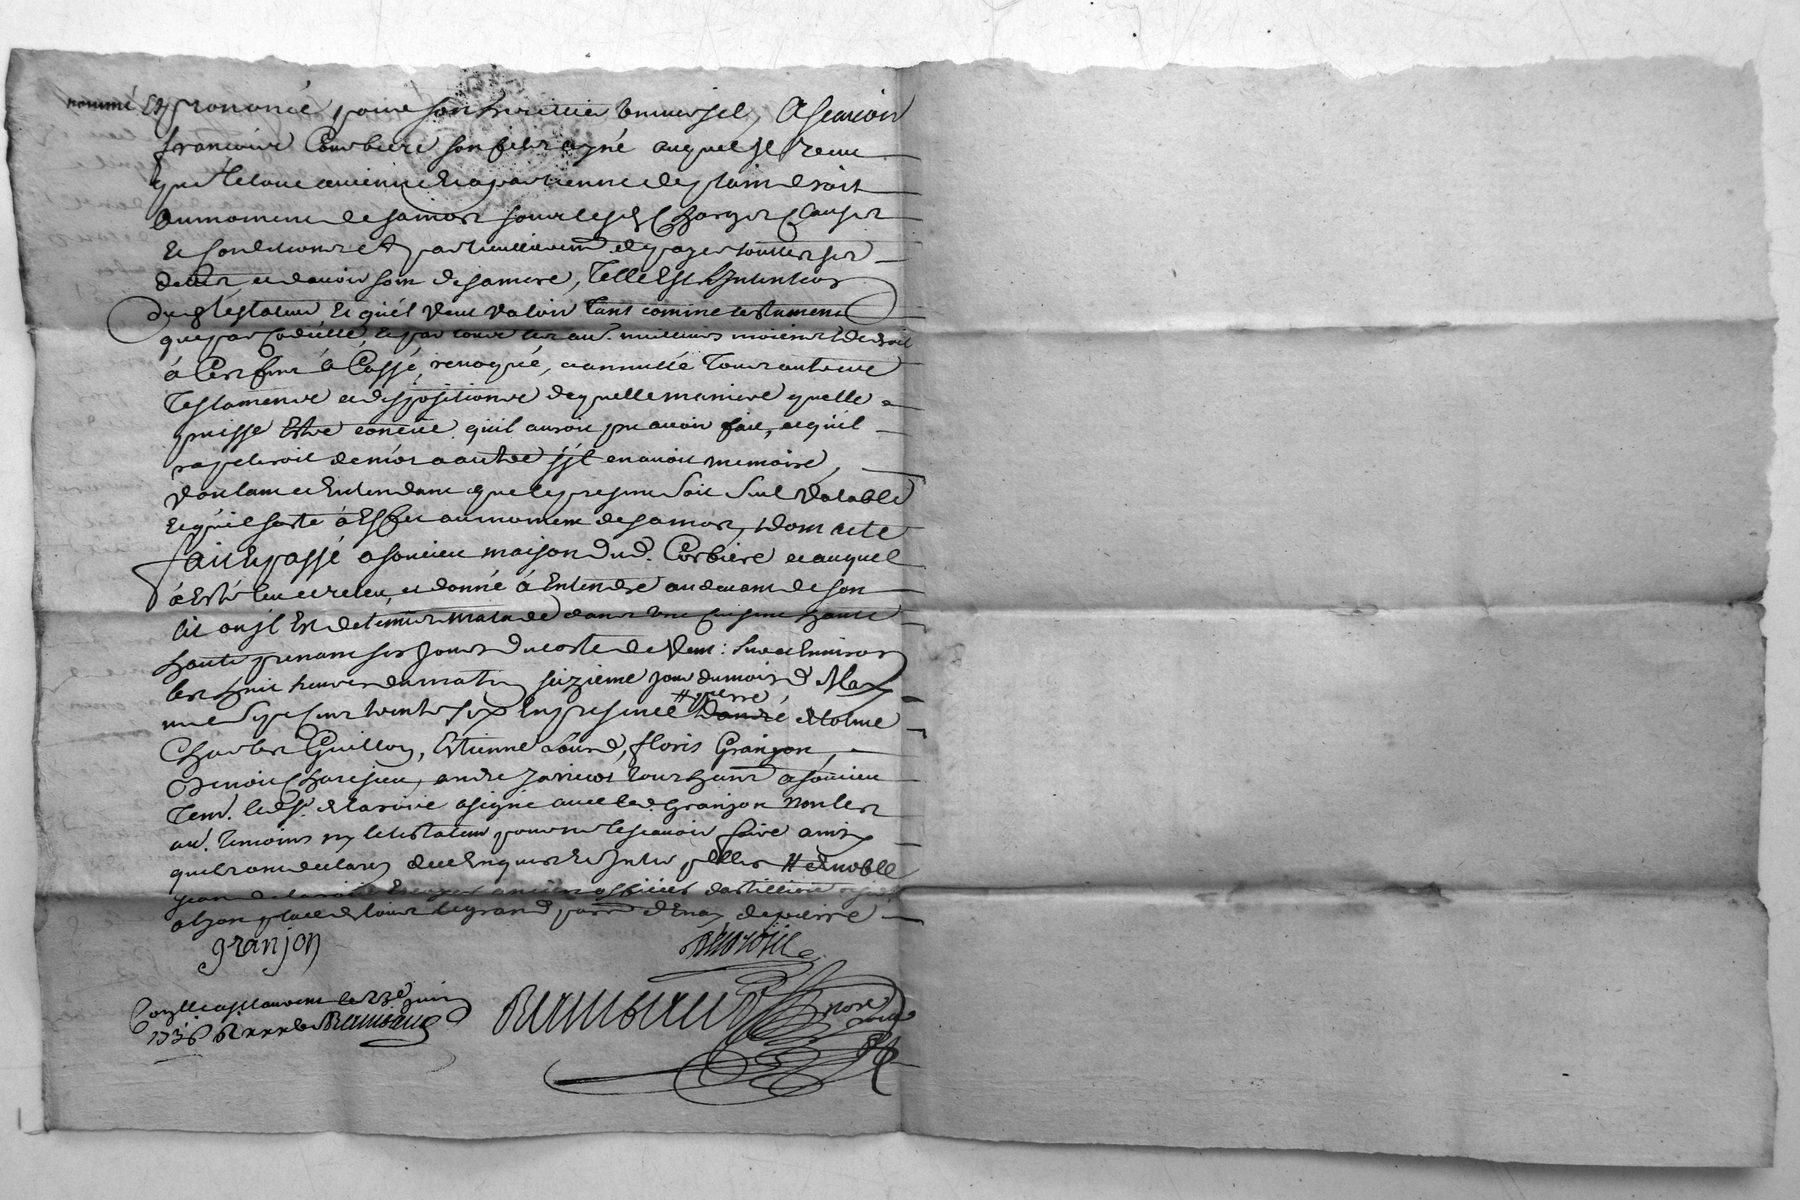 nommé Et prononcé pour son heritier universel, A scavoir
francoise Courbiere son fils ayné auquel Il veut
que le tout avienne et apartienne de plain droit
au moment de sa mort sous lesd. Charges Clauses
Et Conditions Et particulierement de payer touttes ses
dettes et davoir soin de sa mere, Telle Est L'Intention
dud. testateur Et quil veut valoir tant comme testament
que par Codicille, et par tous les au. meilleurs moiens de droit
à Ces fins à Cassé, revoqué, et annullé Tous autres
Testaments et dispositions de quelle maniere quelle
puisse Estre conceue quil auroit pu avoir fait, et quil
rapeleroit de mot a autre sil en avoit memoire,
Voulant et Entendant que le present soit seul valable
Et quil sorte à Effet au moment de sa mort, Dont acte
fait Et passé a soucieu maison dud. Corbiere et auquel
à Esté leu et releu, et donné à Entendre au devant de son
lit ou Il Est detenu malade dans une Cuisine haute
haute prenant ses jours du coste de Vent: sur et Environ
les huit heures du matin seizieme jour du mois de May
mil sept cent trente six En presence # pierre D'andré et tolme
Charles Guillon, Estienne , floris Granjon,
Benoit , andre tous hants a soucieu
Tem. led. Sr. delaroüe a signé avec led. granjon non les
au. temoins ny le testateur pour ne le scavoir faire ains
quils ont declaré de ce Enquis Et Interpelles # et noble
jean delaroüe Ecuyer ancien officier dartillerie
a lyon place de louis le grand parr. d'Enay depierre
granjon
delaroüe
Conlle a st laurent le 23e juin
1736 R
not. roial